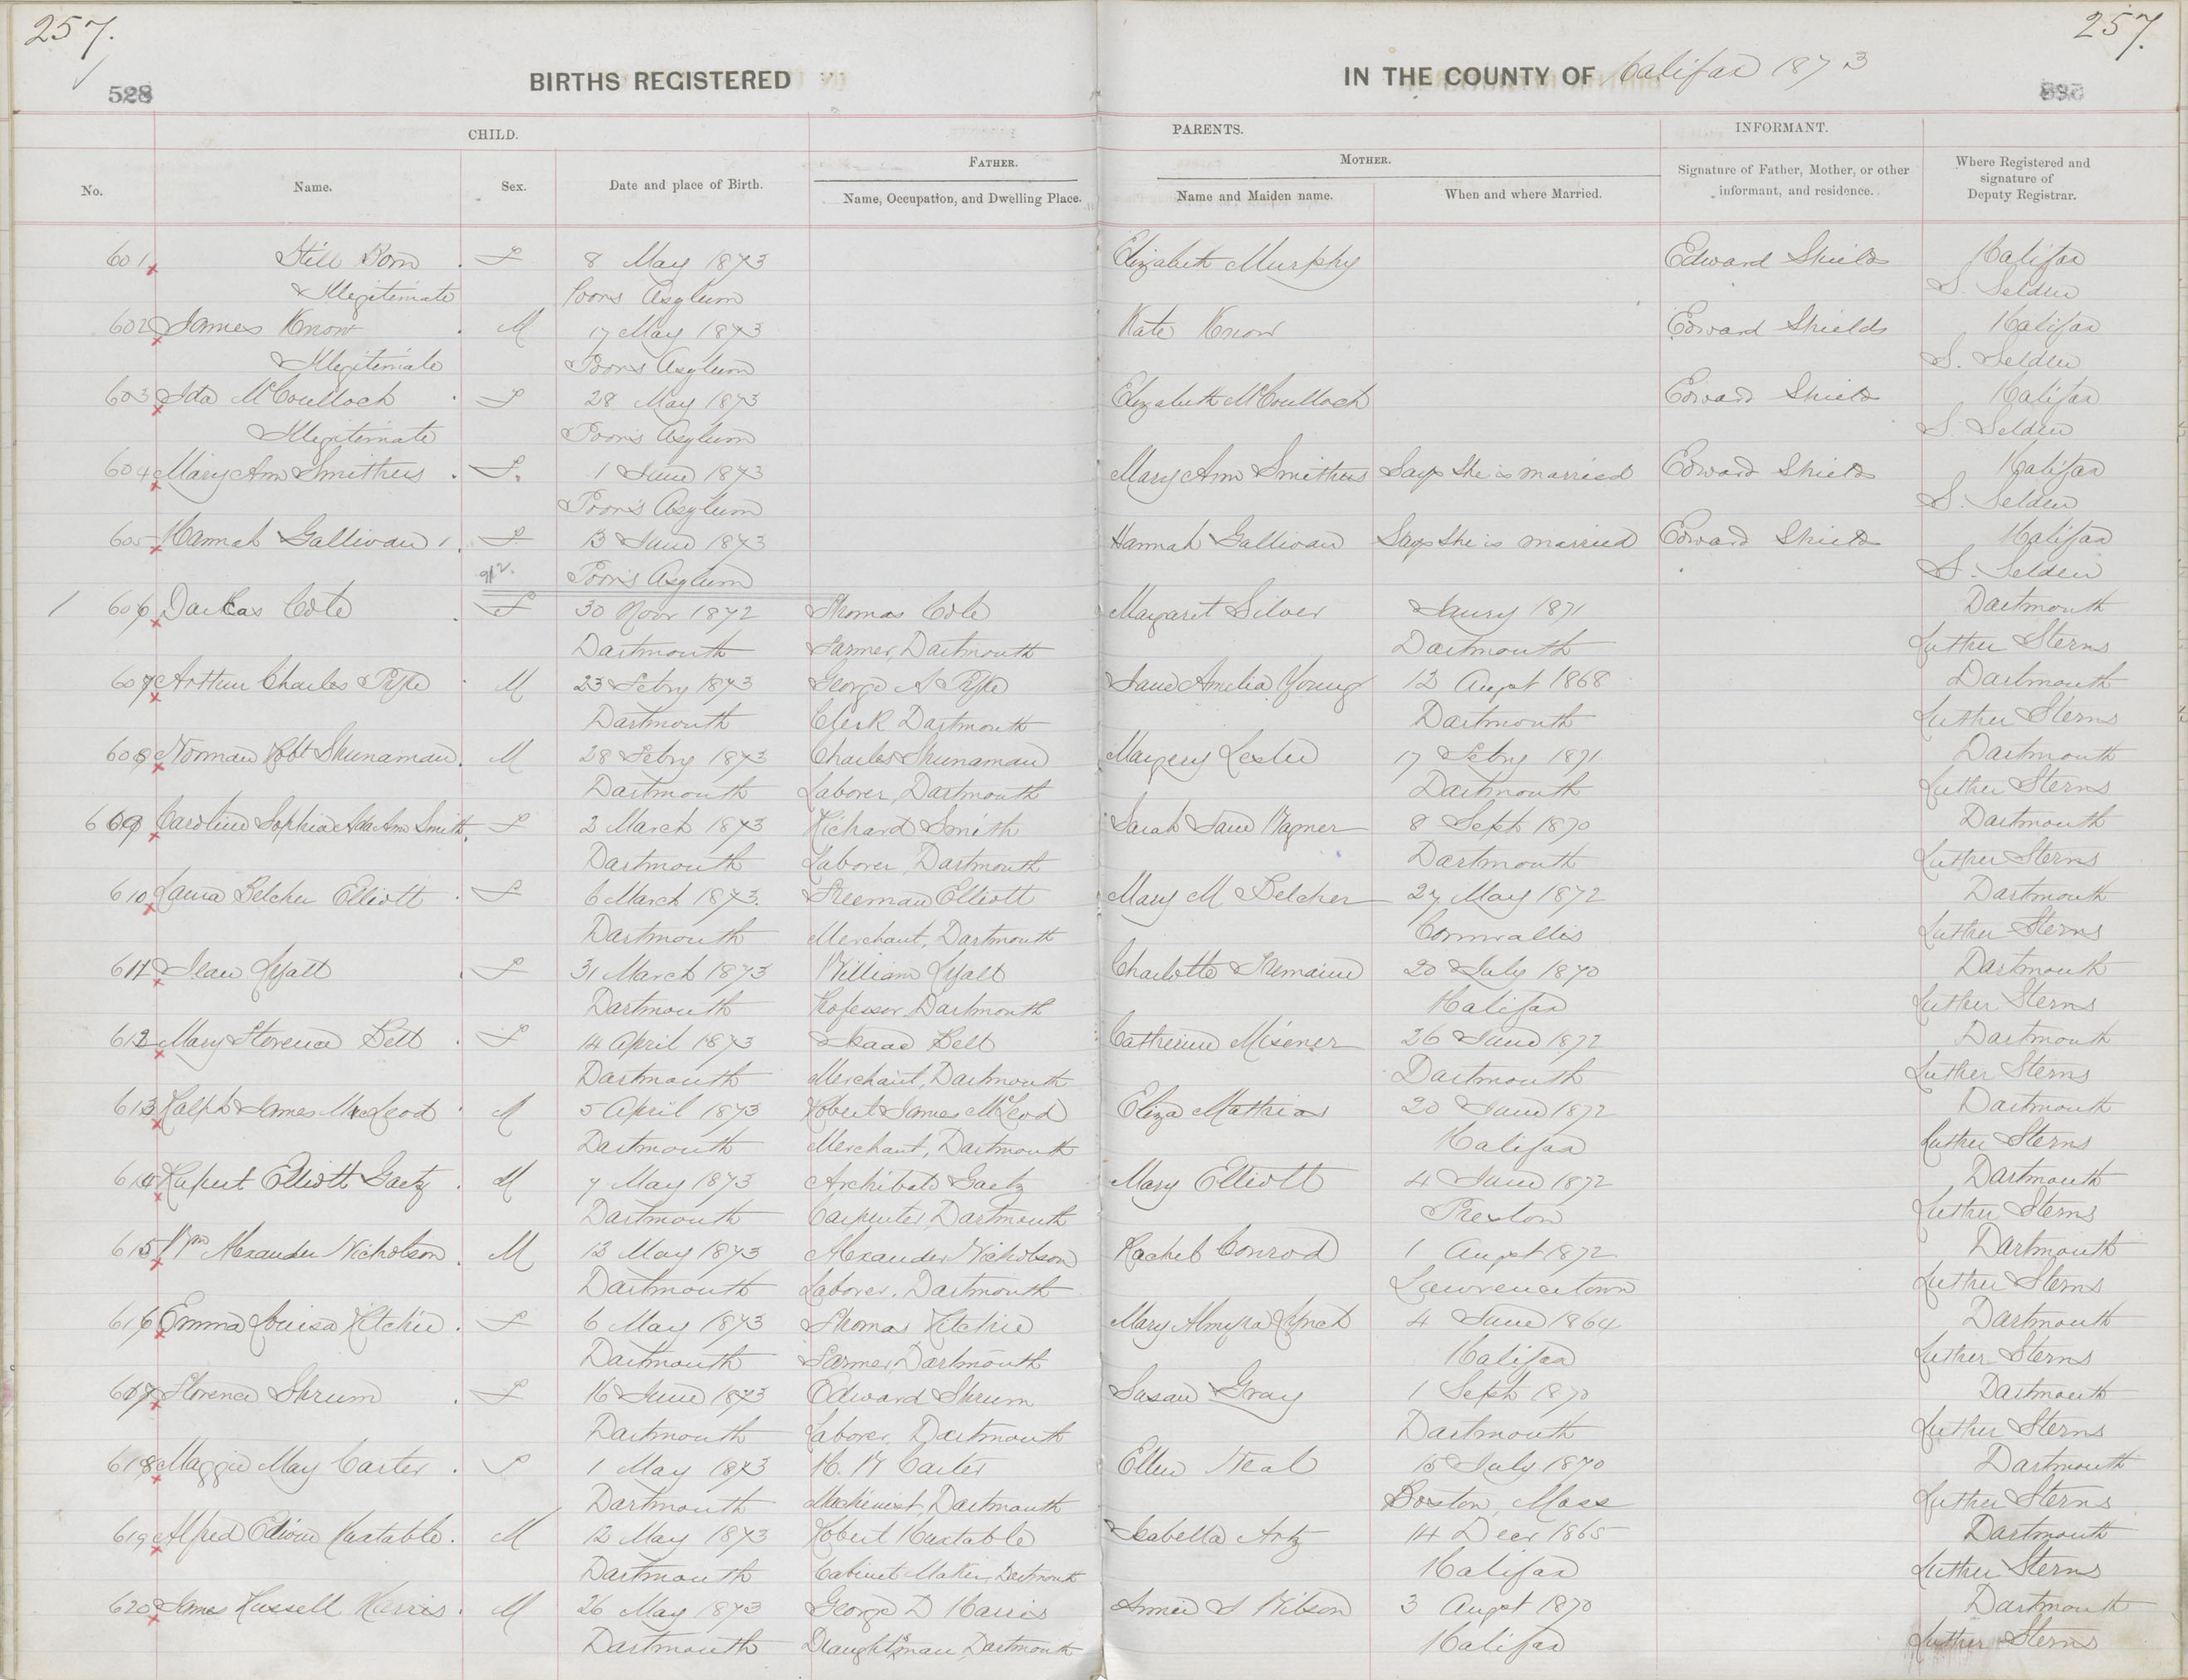 257. 257.
528 BIRTHS REGISTERED IN THE COUNTY OF Halifax 1873 528
CHILD. PARENTS. INFORMANT.
No. Name. Sex. Date and place of Birth. FATHER. Name, Occupation, and Dwelling Place. MOTHER. Name and Maiden name. When and where Married. Signature of Father, Mother, or other informant, and residence. Where Registered and signature of Deputy Registrar.
601 Still Born F 8 May 1873 Elizabeth Murphy Edward Shields Halifax
Illegitimate Poors Asylum S. Selden
602 James Know M 17 May 1873 Kate Know Edward Shields Halifax
Illegitimate Poors Asylum S. Selden
603 Ida McCoulloch F 28 May 1873 Elizabeth McCoulloch Edward Shields Halifax
Illegitimate Poors Asylum S. Selden
604 Mary Ann Smithers F. 1 June 1873 Mary Ann Smithers Says She is married Edward Shields Halifax
Poors Asylum S. Selden
605 Hannah Gallivan F 13 June 1873 Hannah Gallivan Says She is married Edward Shields Halifax
912. Poors Asylum S. Selden
1 606 Darkas Cole F 30 Novr 1872 Thomas Cole Margaret Silver Jany 1871 Dartmouth
Dartmouth Farmer, Dartmouth Dartmouth Luther Sterns
607 Arthur Charles Pyke M 23 Febry 1873 George A Pyke Jane Amelia Young 12 Augst 1868 Dartmouth
Dartmouth Clerk Dartmouth Dartmouth Luther Sterns
608 Norman Robt Shunaman M 28 Febry 1873 Charles Shunaman Margery Leslie 17 Febry 1871 Dartmouth
Dartmouth Laborer, Dartmouth Dartmouth Luther Sterns
609 Caroline Sophia Ada Ann Smith F 2 March 1873 Richard Smith Sarah Jane Wagner 8 Sept 1870 Dartmouth
Dartmouth Laborer, Dartmouth Dartmouth Luther Sterns
610 Laura Belcher Elliott F 6 March 1873. Freeman Elliott Mary M Belcher 27 May 1872 Dartmouth
Dartmouth Merchant, Dartmouth Cornwallis Luther Sterns
611 Jean Lyall F 31 March 1873 William Lyall Charlotte 20 July 1870 Dartmouth
Dartmouth Professor, Dartmouth Halifax Luther Sterns
612 Mary Florence Bell F 14 April 1873 Isaac Bell Catherine Misener 26 June 1872 Dartmouth
Dartmouth Merchant, Dartmouth Dartmouth Luther Sterns
613 Ralph James McLeod M 5 April 1873 Robert James McLeod Eliza Mathias 20 June 1872 Dartmouth
Dartmouth Merchant, Dartmouth Halifax Luther Sterns
614 Rupert Elliott Gaetz M 7 May 1873 Archibald Gaetz Mary Elliott 4 June 1872 Dartmouth
Dartmouth Carpenter, Dartmouth Preston Luther Sterns
615 Wm Alexander Nicholson M 13 May 1873 Alexander Nicholson Rachel Conrod 1 Augst 1872 Dartmouth
Dartmouth Laborer, Dartmouth Lawrencetown Luther Sterns
616 Emma Louisa Ritchie F 6 May 1873 Thomas Ritchie Mary Almyra Lynch 4 June 1864 Dartmouth
Dartmouth Farmer, Dartmouth Halifax Luther Sterns
617 Florence Shrum F 16 June 1873 Edward Shrum Susan Gray 1 Sept 1870 Dartmouth
Dartmouth Laborer, Dartmouth Dartmouth Luther Sterns
618 Maggie May Carter F 1 May 1873 H. W Carter Ellen Neal 15 July 1870 Dartmouth
Dartmouth Machinist, Dartmouth Boston, Mass Luther Sterns
619 Alfred Edwin Huxtable M 12 May 1873 Robert Huxtable Isabella Artz 14 Decr 1865 Dartmouth
Dartmouth Cabinet Maker, Dartmouth Halifax Luther Sterns
620 James Russell Harris M 26 May 1873 George D Harris Annie S Wilson 3 Augst 1870 Dartmouth
Dartmouth Draughtsman, Dartmouth Halifax Luther Sterns